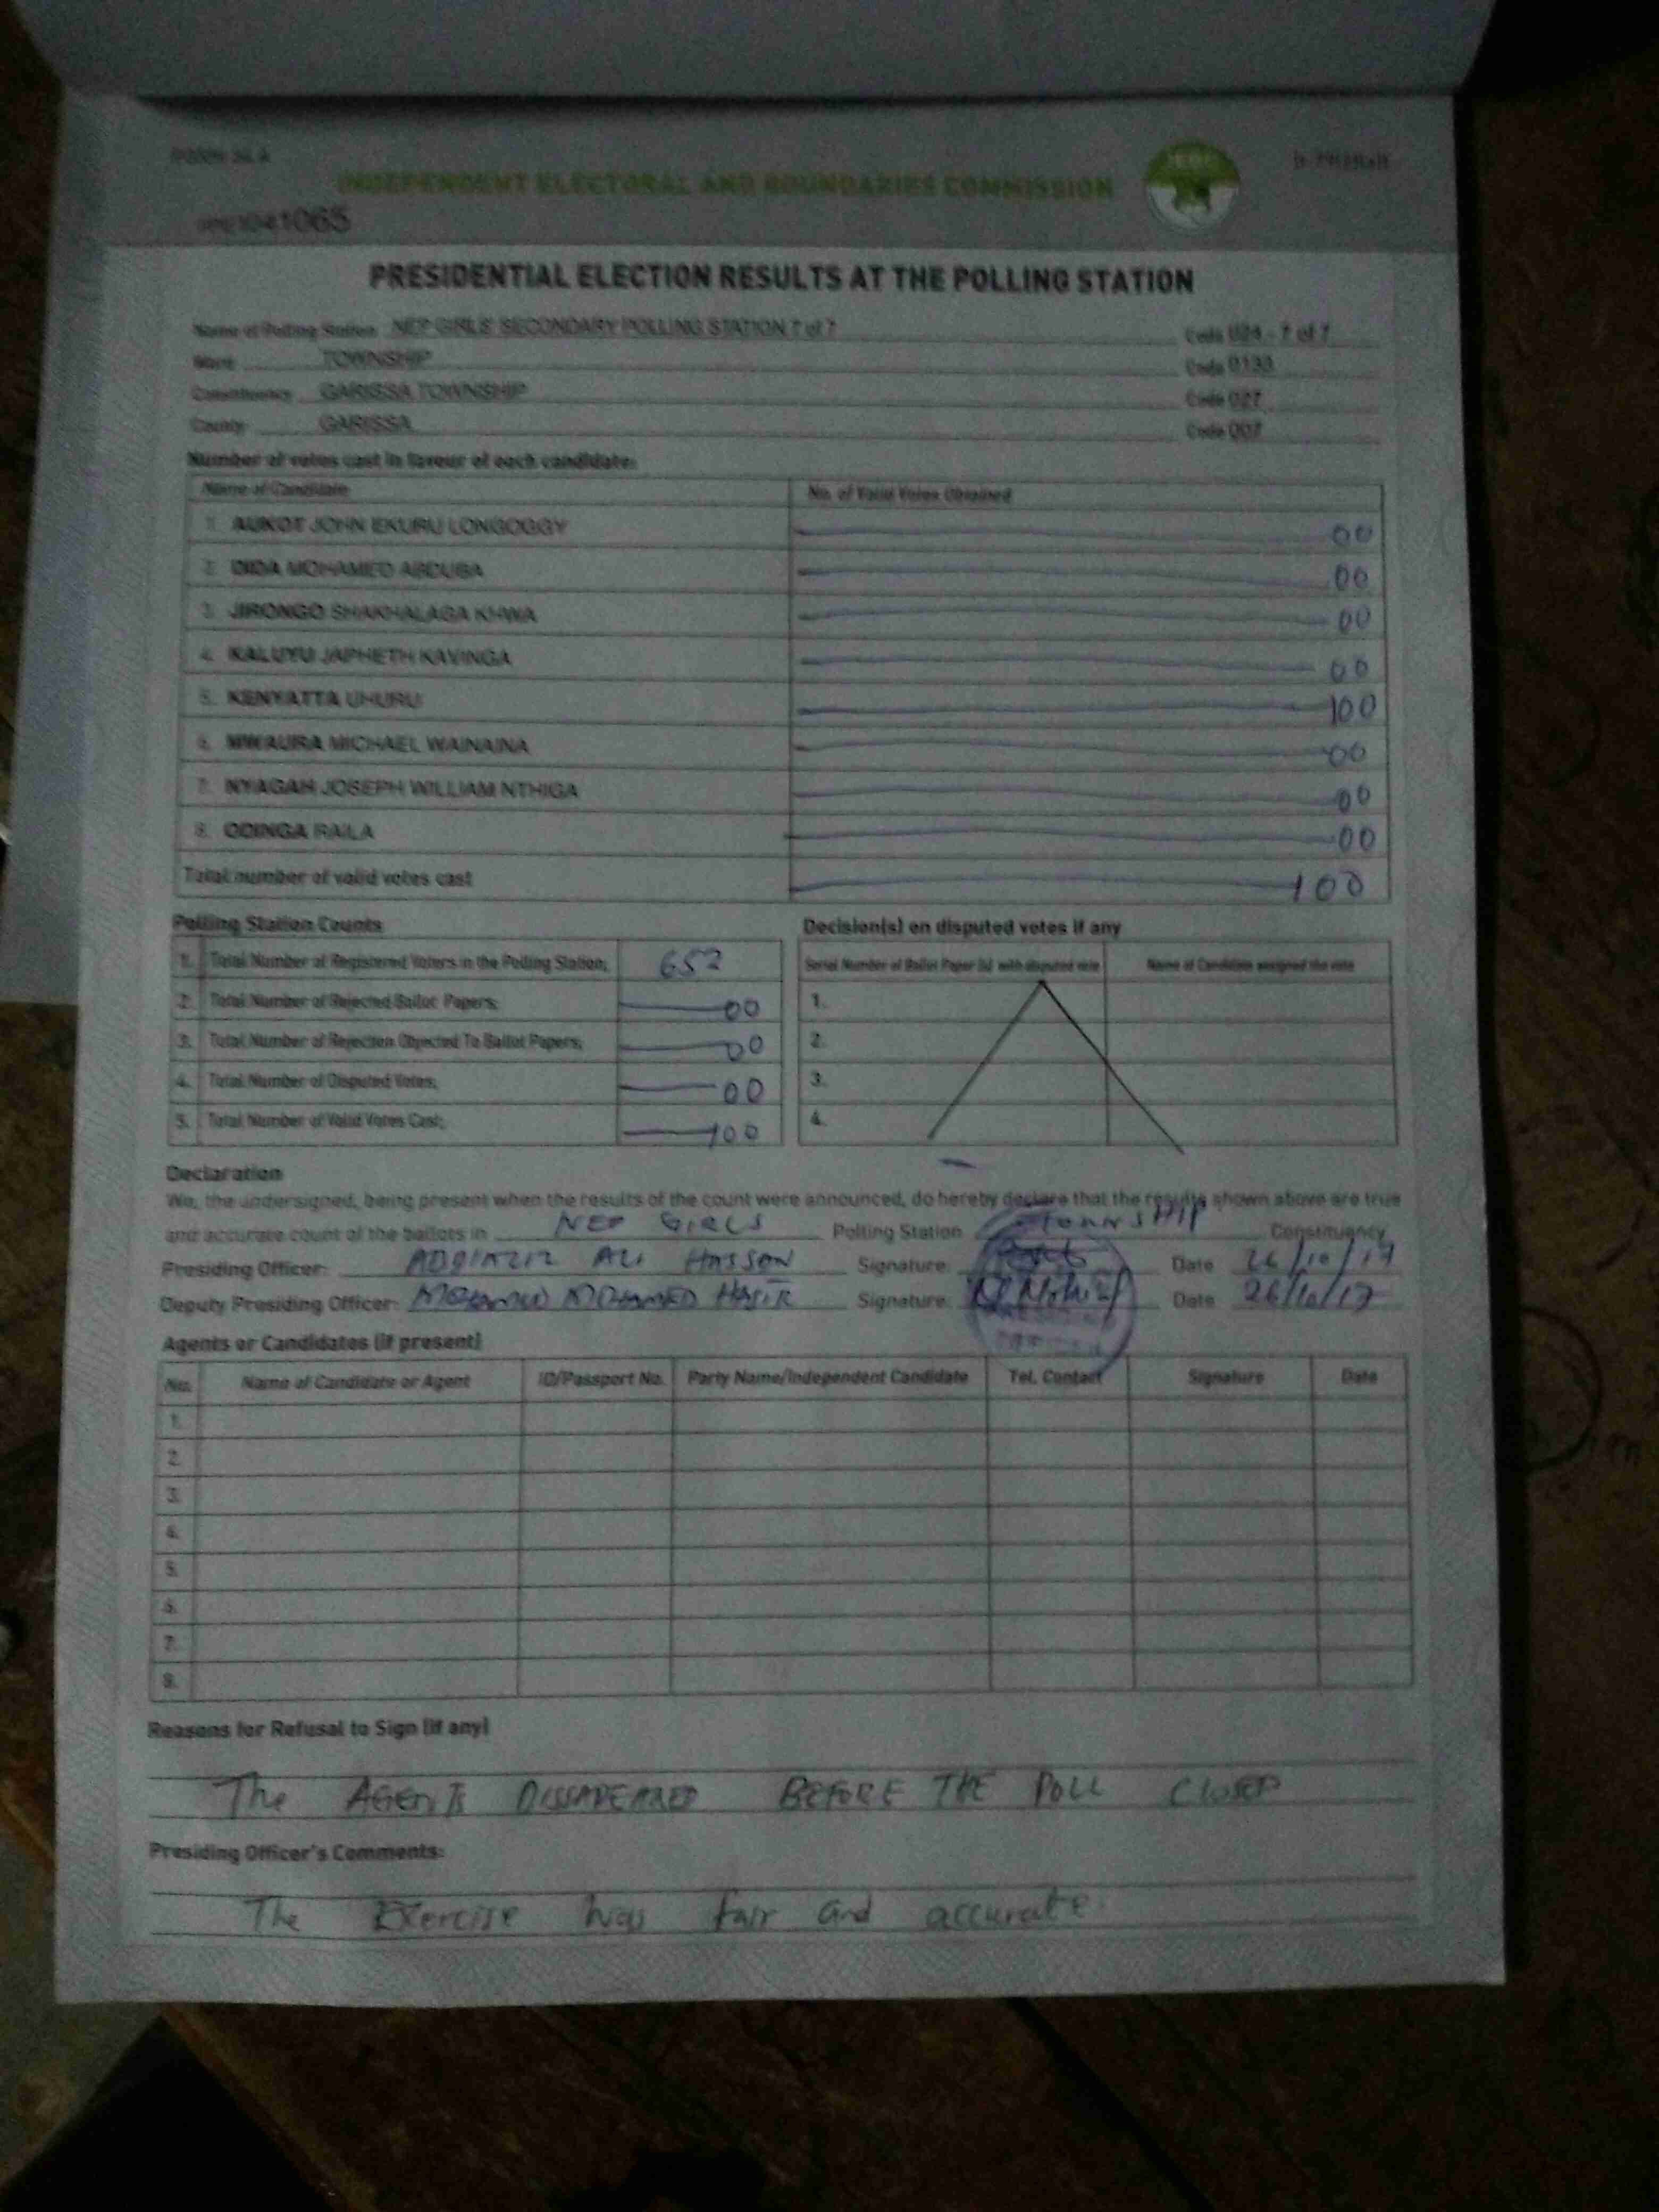 FORM 34 A
INDEPENDENT ELECTORAL AND BOUNDARIES COMMISSION
IEBC
1065
PRESIDENTIAL ELECTION RESULTS AT THE POLLING STATION
Name of Polling Station NEP GIRLS SECONDARY POLLING STATION 7 of 7 Code 024 - 7 of 7
Ward TOWNSHIP Code 0133
Constituency GARISSA TOWNSHIP Code 027
County GARISSA Code 007
Number of votes cast in favour of each candidate:
Name of Candidate No. of Valid Votes Obtained
1. AUKOT JOHN EKURU LONGOGGY 00
2. DIDA MOHAMED ABDUBA 00
3. JIRONGO SHAKHALAGA KHWA 00
4. KALUYU JAPHETH KAVINGA 00
5. KENYATTA UHURU 100
6. MWAURA MICHAEL WAINAINA 00
7. NYAGAH JOSEPH WILLIAM NTHIGA 00
8. ODINGA RAILA 00
Total number of valid votes cast 100
Polling Station Counts
1. Total Number of Registered Voters in the Polling Station; 652
2. Total Number of Rejected Ballot Papers; 00
3. Total Number of Rejection Objected To Ballot Papers; 00
4. Total Number of Disputed Votes; 00
5. Total Number of Valid Votes Cast; 100
Decision(s) on disputed votes if any
Serial Number of Ballot Paper (s) with disputed vote Name of Candidate assigned the vote
1.
2.
3.
4.
Declaration
We, the undersigned, being present when the results of the count were announced, do hereby declare that the results shown above are true
and accurate count of the ballots in NEP GIRLS Polling Station TownSHIP Constituency
Presiding Officer: ALI HASSAN Signature: Date 26/10/17
Deputy Presiding Officer: MOHAMED MOHAMED HASIR Signature: Date 26/10/17
Agents or Candidates (if present)
No. Name of Candidate or Agent ID/Passport No. Party Name/Independent Candidate Tel. Contact Signature Date
1.
2.
3.
4.
5.
6.
7.
8.
Reasons for Refusal to Sign (if any)
The AGENTS DISSAPEARED BEFORE THE POLL CLOSED
Presiding Officer's Comments:
The Exercise was fair and accurate.